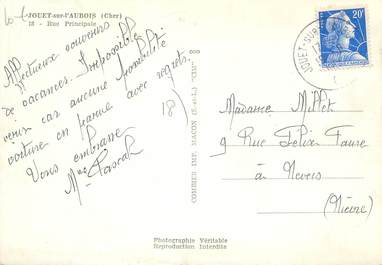 JOUET-sur-l'AUBOIS (Cher)
18 - Rue Principale
Affectueux souvenirs
de vacances. Impossible
venir car aucune
voiture en panne avec regrets.
Vous embrasse
Pascal
18)
COMBIER IMP. MACON (S.-et-L.) "CIM"
Photographie Véritable
Reproduction Interdite
20F
JOUET-SUR
Madame Millet
9 Rue Felix Faure
à Nevers
(Nièvre)